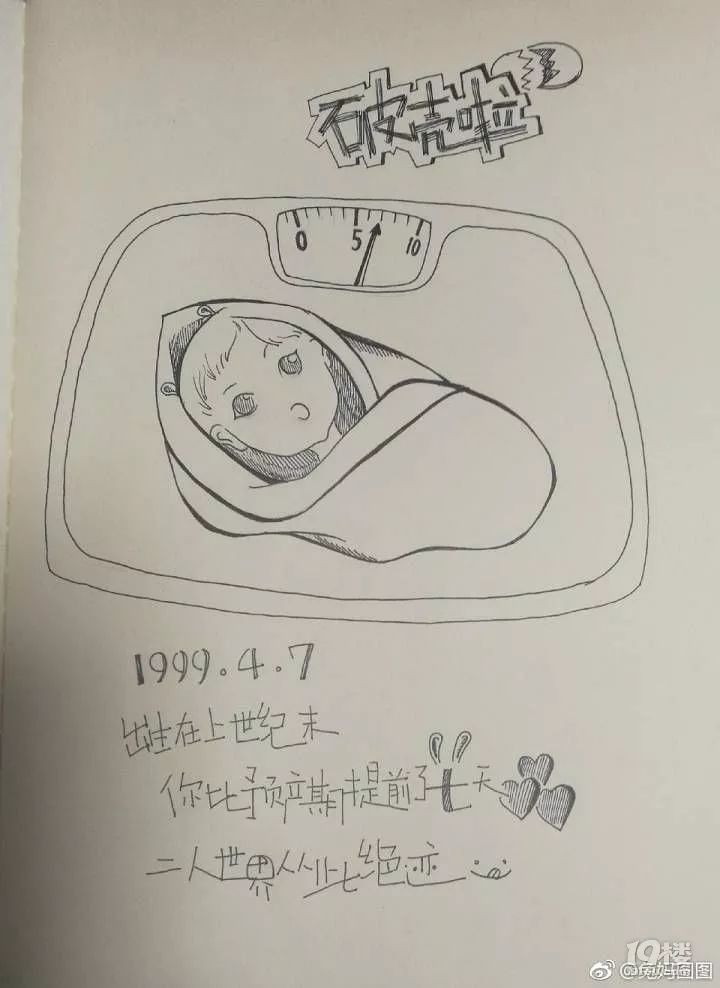 破壳啦
0 5 10
1999.4.7
出生在上世纪末
你比预产期提前了七天
二人世界从此绝迹
19楼
@兔妈圈圈